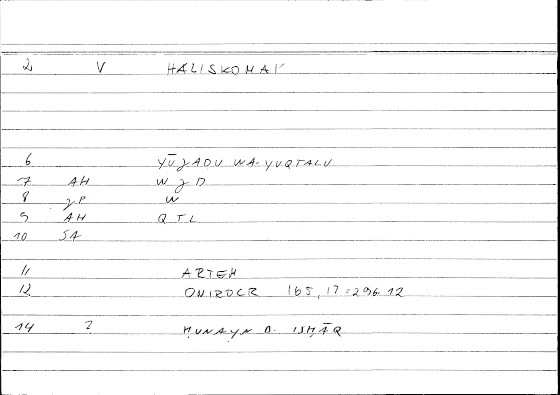 2 V HALISKOMAI
6 YŪǧADU WA-YUQTALU
7 AH W ǧ D
8 ǧP W
9 AH Q T L
10 SA
11 ARTEM
12 ONIROCR 165,17=296.12
14 2 ḤUNAYN B. ISḤĀQ